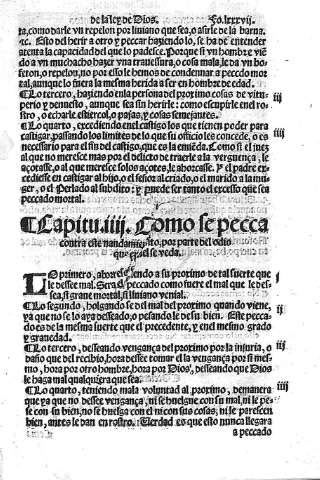 de la ley de Dios. Fo. lxxxvij.
ta, como darle vn repelon por liuiano que sea, o asirle de la barua.
ec. Esto del herir a otro y peccar haziendo lo, se ha de entender
atenta la capacidad del que lo padesce. Porque si vn hombre viẽ do
a vn muchacho hazer vna trauessura, o cosa mala, le da vn bo
feton, o repelon, no por esso le hemos de condennar a peccado mor
tal, aunque lo fuera la mesma herida a ser en hombre de edad.
¶ Lo tercero, haziendo en la persona del proximo cosas de vitu
perio y denuesto, aunque sea sin herirle: como escupirle en el ro
stro, o echarle estiercol, o pajas, y cosas semejantes.
iij
¶ Lo quarto, excediendo en el castigo los que tienen poder para
castigar, passando los limites de lo que su officio les concede, o es
iiij
necessario para el fin del castigo, que es la emiẽda. Como si el juez
al que no meresce mas por el delicto de traerle a la verguença, le
açotasse, o al que meresce solos açotes, le ahorcasse. Y el padre ex-
cediesse en castigar al hijo, o el señor al criado, o el marido a la mu
ger, o el Perlado al subdito: y puede ser tanto el excesso que sea
peccado mortal.
¶ Capitu. iiij. Como se pecca
contra este mandamiento, por parte del odio
que en el se veda.
LO primero, desseando a su proximo de tal suerte que
i
le dessee mal. Sera el peccado como fuere el mal que le des-
sea, si graue mortal, si liuiano venial.
¶ Lo segundo, holgando se del mal del proximo quando viene,
ij
ya que no se lo aya desseado, o pesando le de su bien. Este pecca-
do es de la mesma suerte que el precedente, y en el mesmo grado
y grauedad.
¶ Lo tercero, desseando vengança del proximo por la injuria, o
iij
daño que del recibio, hora dessee tomar el la vengança por si mes-
mo, hora por otro hombre, hora por Dios, desseando que Dios
le haga mal qualquiera que sea.
¶ Lo quarto, teniendo mala voluntad al proximo, de manera
iiij
que ya que no dessee vengança, ni se huelgue con su mal, ni le pe-
se con su bien, no se huelga con el ni con sus cosas, ni le parescen
bien, antes le dan en rostro. Verdad es que esto nunca llegara
a peccado